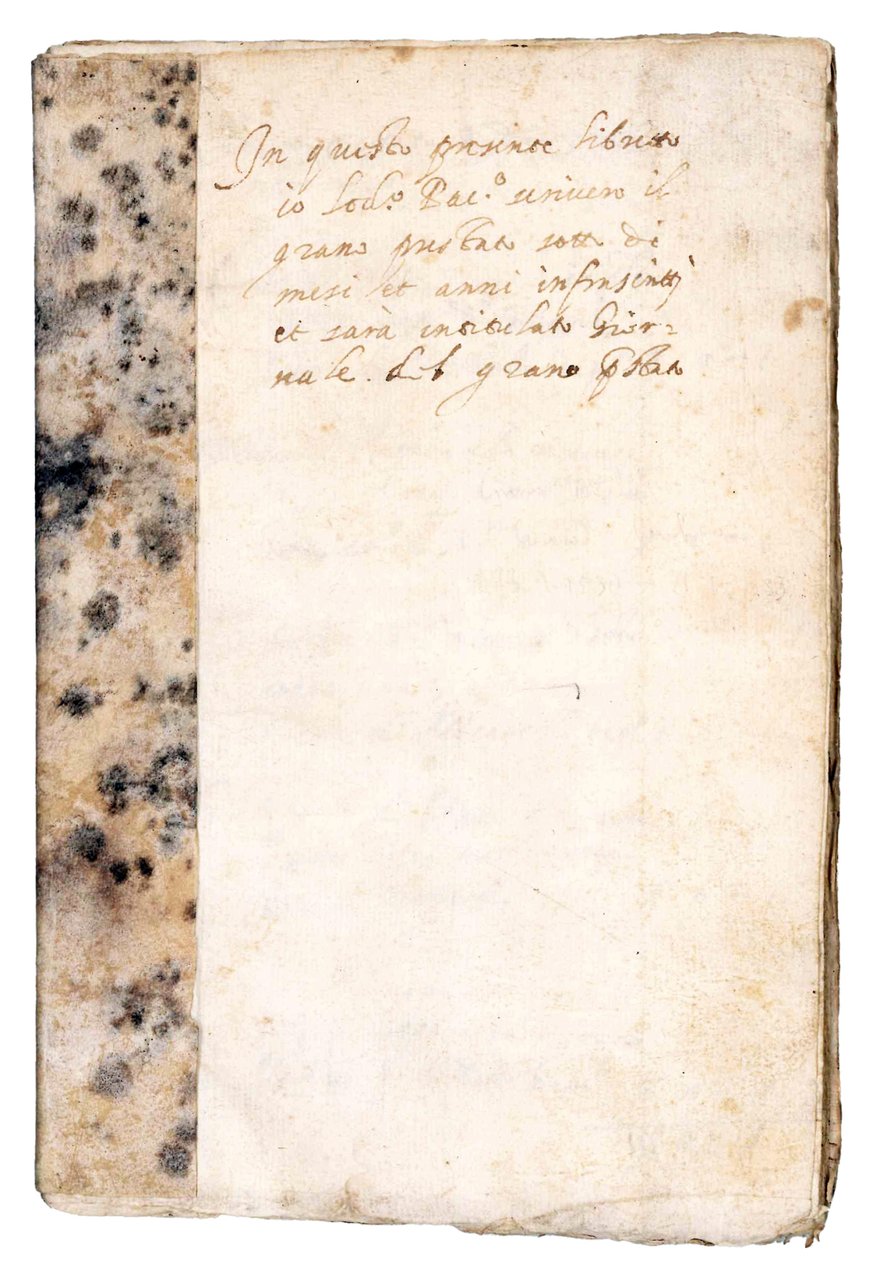 In questo presente libretto
io Lod.º Pac.º scrivero il
grano prestato sotto di
mesi et anni infrascritti
et sarà intitulato Gior=
nale del grano pstato